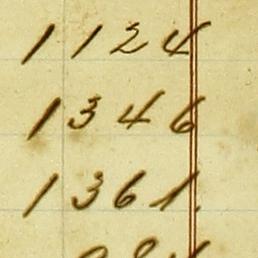 1124
1346
1361.